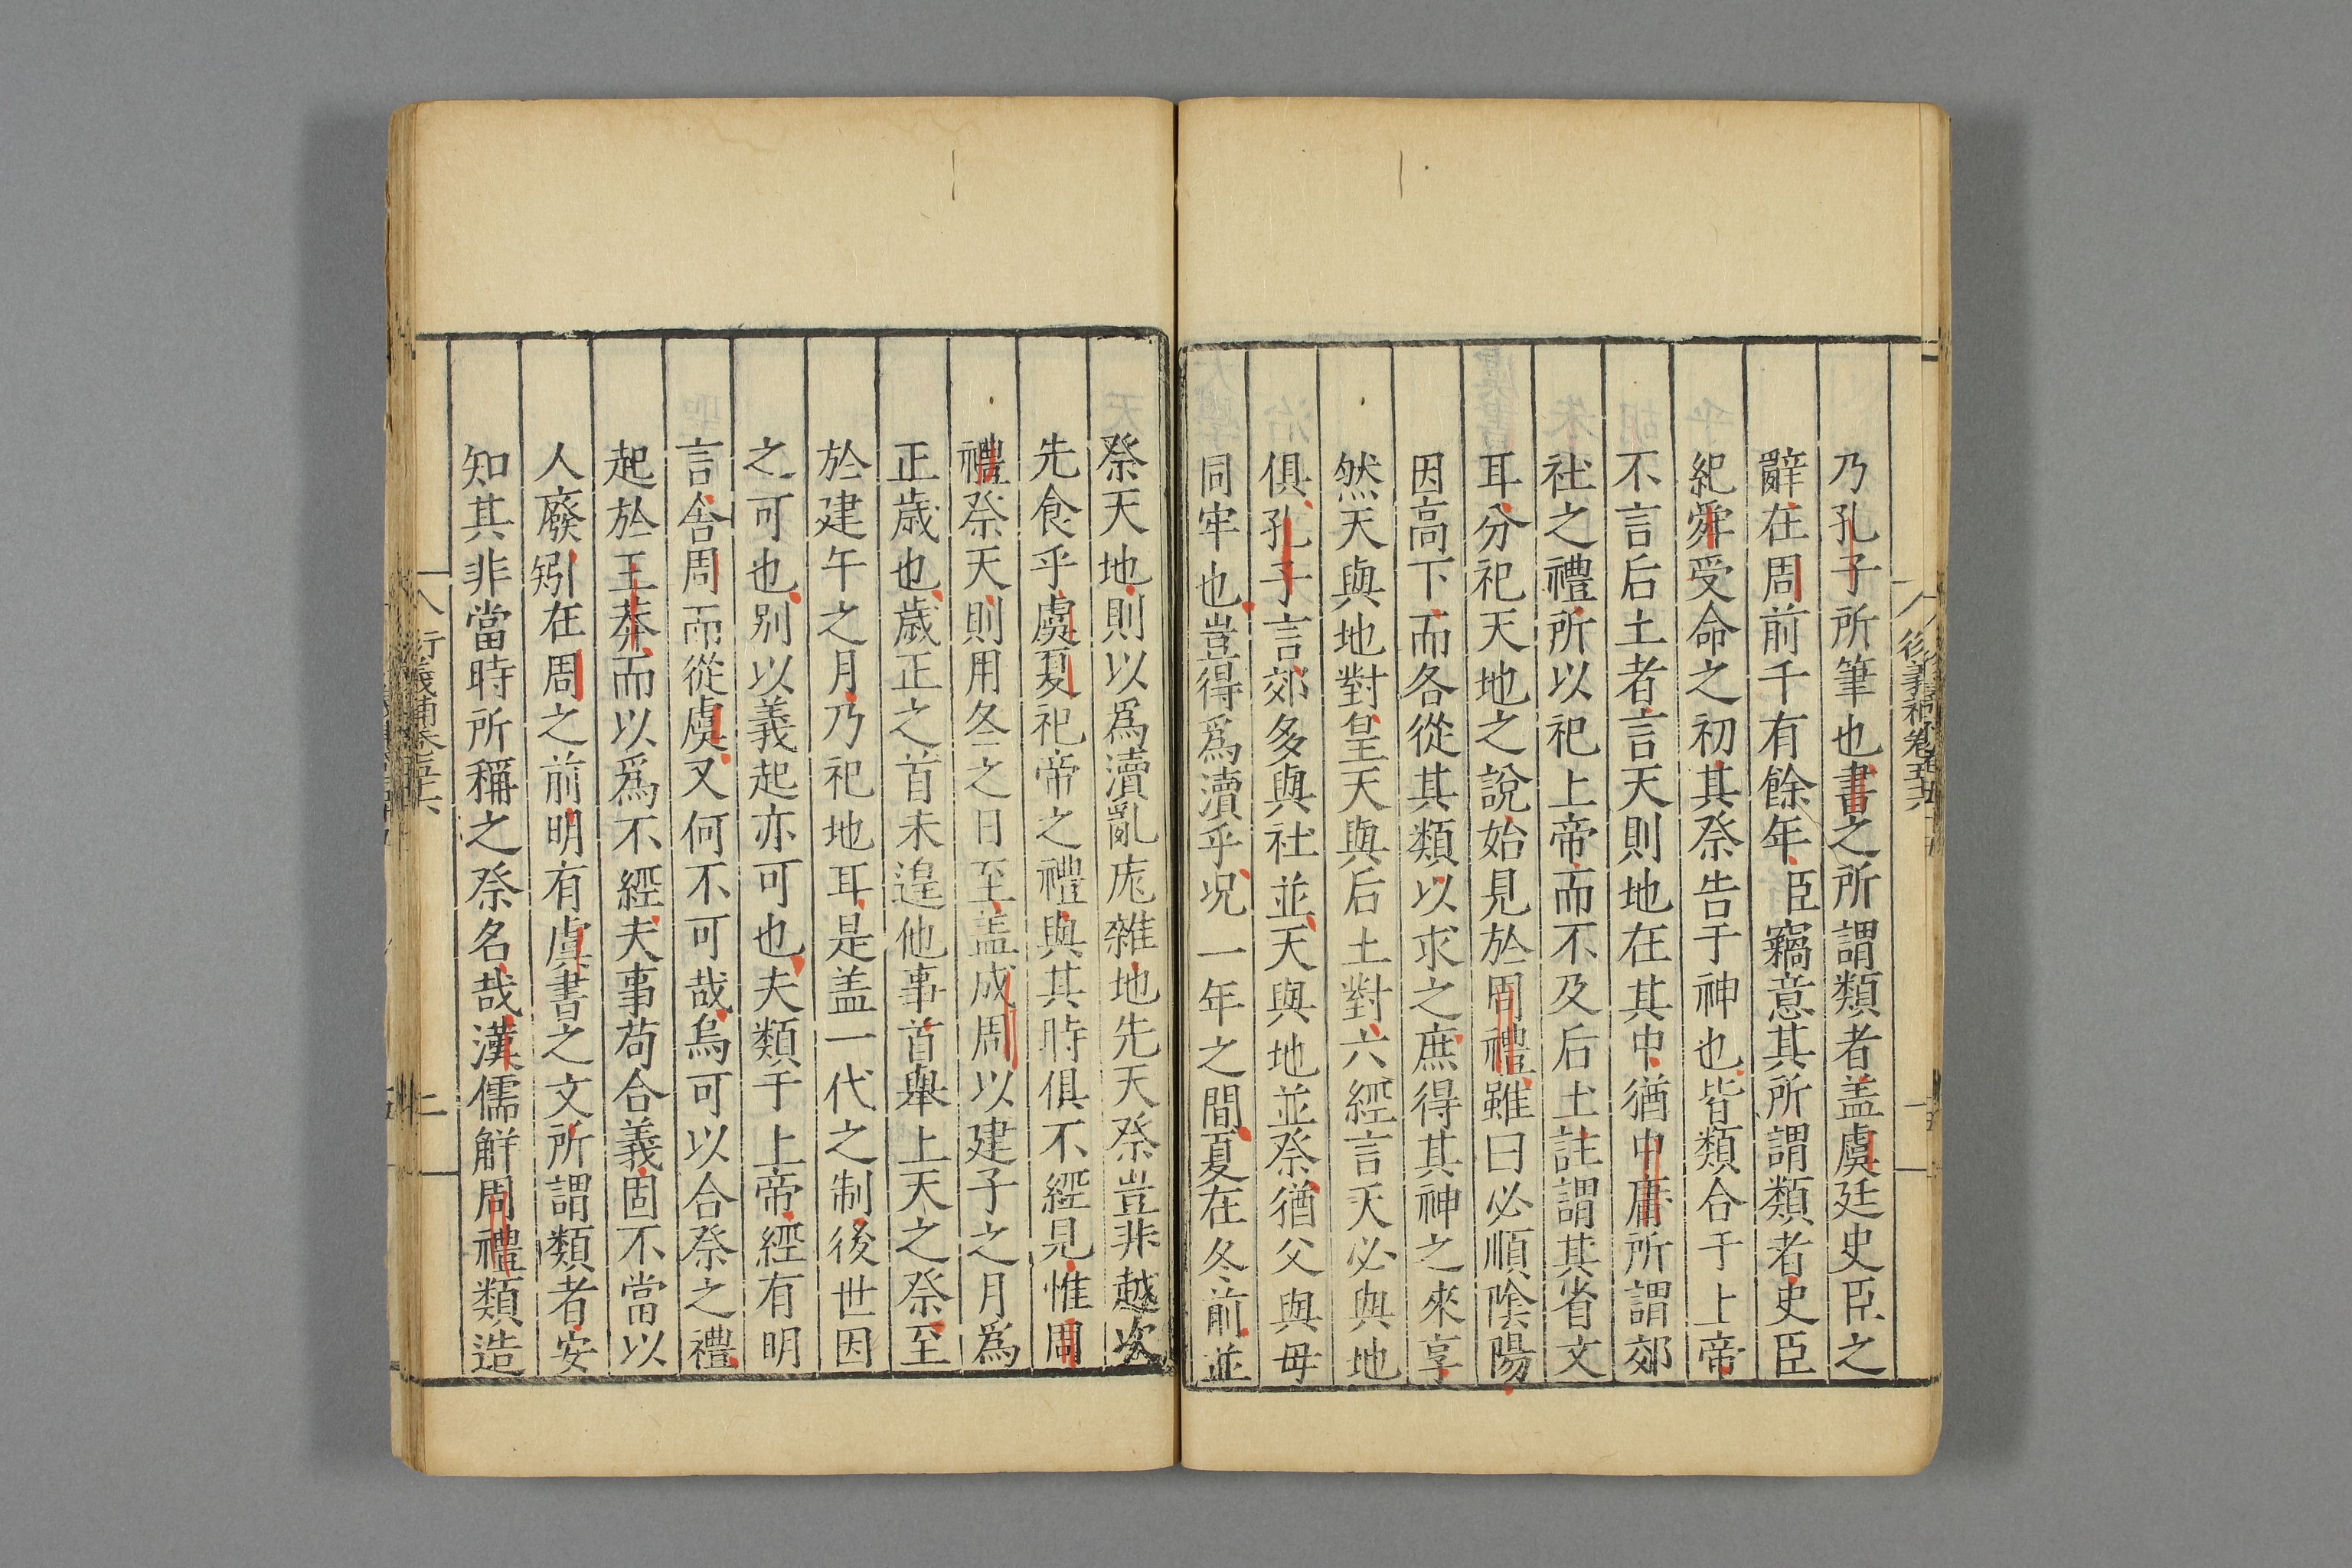 乃孔子所筆也書之所謂類者盖虞廷史臣之
辭在周前千有餘年臣竊意其所謂類者史臣
紀舜受命之初其祭告于神也皆類合于上帝
不言后土者言天則地在其中猶中庸所謂郊
社之禮所以祀上帝而不及后土註謂其省文
耳分祀天地之說始見於周禮雖曰必順陰陽
因高下而各從其類以求之庶得其神之來享
然天與地對皇天與后土對六經言天必與地
俱孔子言郊多與社並天與地並祭猶父與母
同牢也豈得爲瀆乎况一年之間夏在冬前並
祭天地則以爲瀆亂庞雜地先天祭豈非越次
先食乎虞夏祀帝之禮與其時俱不經見惟周
禮祭天則用冬之日至盖成周以建子之月爲
正歳也歳正之首未遑他事首舉上天之祭至
於建午之月乃祀地耳是盖一代之制後世因
之可也别以義起亦可也夫類于上帝經有明
言舎周而從虞又何不可哉烏可以合祭之禮
起於王莽而以爲不經夫事苟合義固不當以
人廢矧在周之前明有虞書之文所謂類者安
知其非當時所稱之祭名哉漢儒觧周禮類造